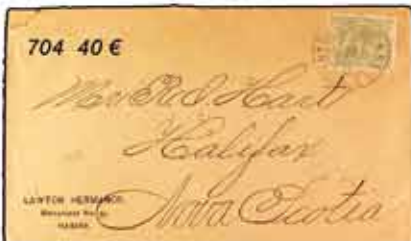 704 40 €
Hart
Halifax
Nova Scotia
LAWTON HERMANOS
HABANA